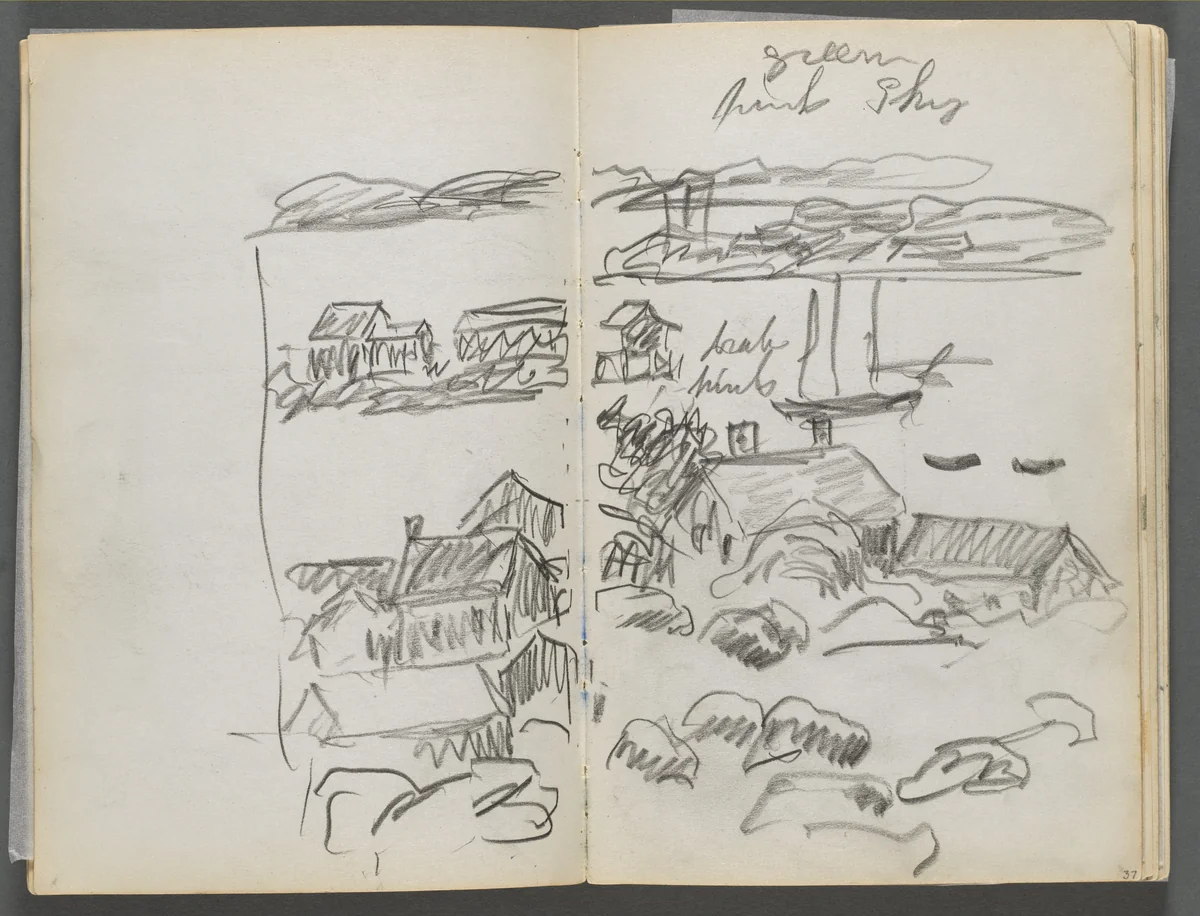 green
pink Sky
pink
37